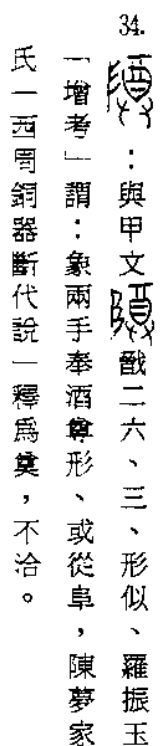 34. ：與甲文戩二六、三、形似、羅振玉
「增考」謂：象兩手奉酒尊形、或從阜，陳夢家
氏「西周銅器斷代說」釋為奠，不洽。